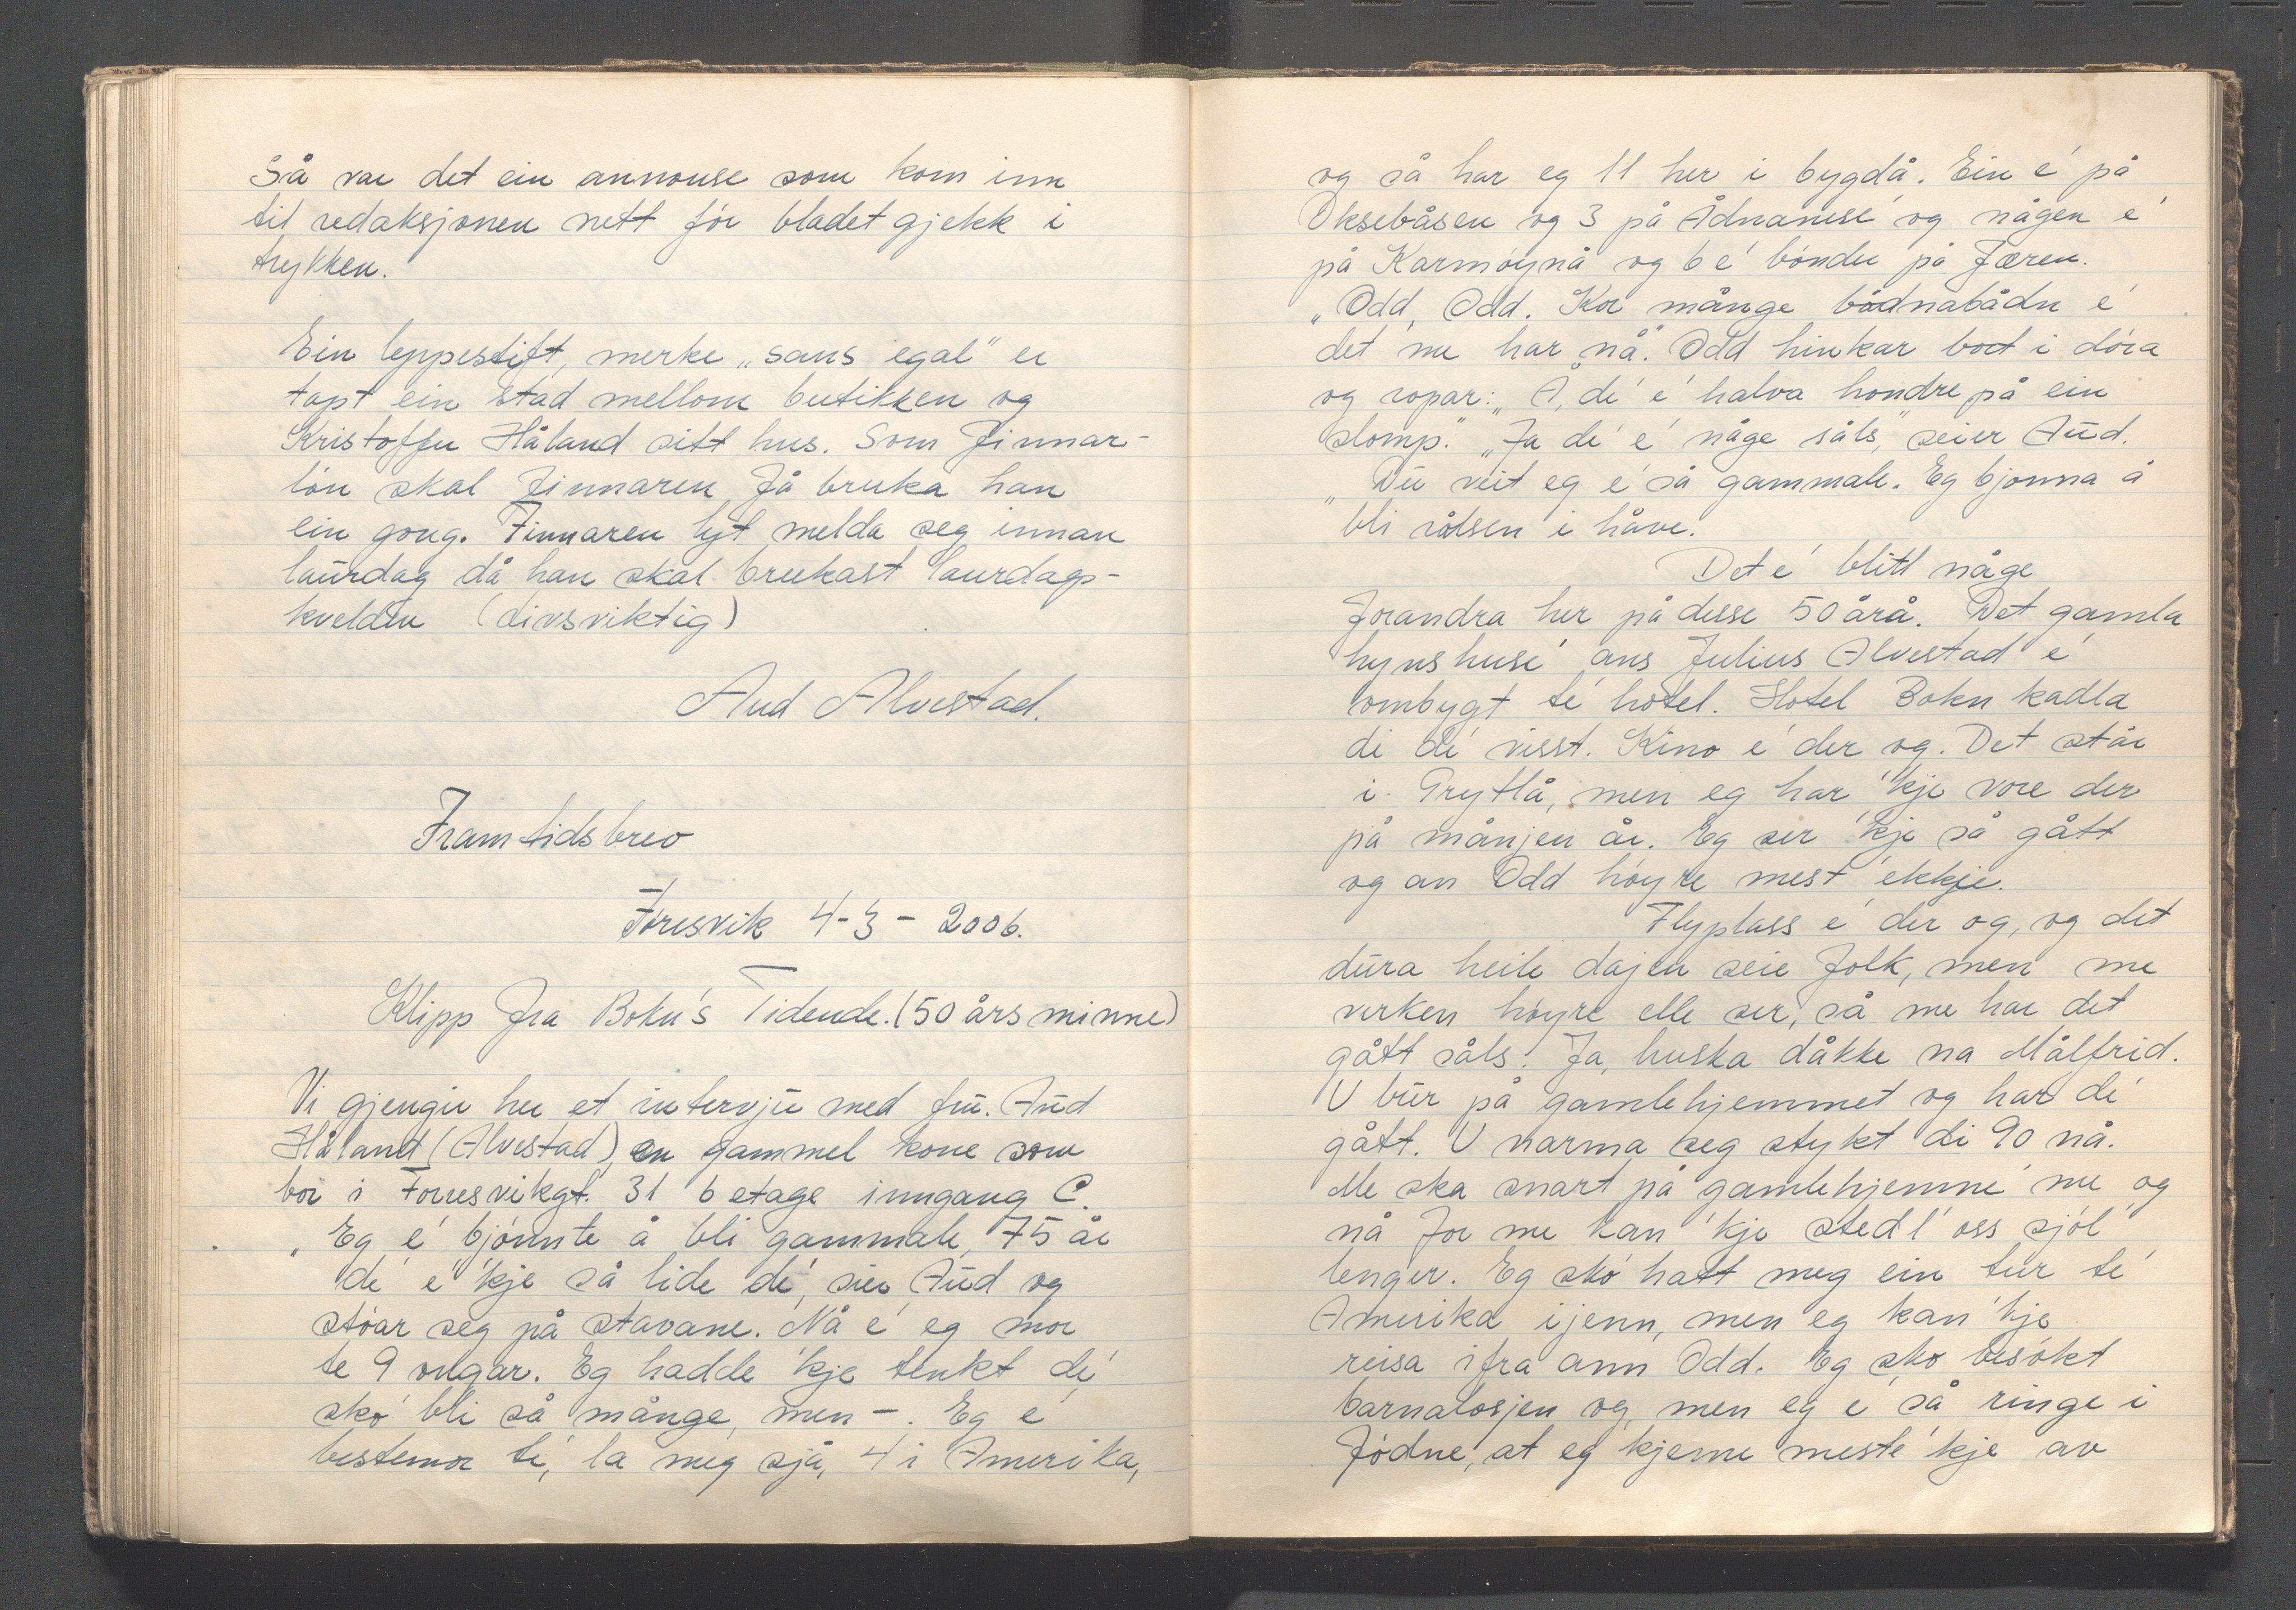 Så var det ein annonse som kom inn
til redaksjonen nett før bladet gjekk i
trykken.
Ein leppestift, merke „sans egal" er
tapt ein stad mellom butikken og
Kristoffer Håland sitt hus. Som finnar-
løn skal finnaren få bruka han
ein gong. Finnaren lyt melda seg innan
laurdag då han skal brukast laurdags-
kvelden (livsviktig)
Aud Alvestad.
Framtidsbrev
Føresvik 4-3-2006.
Klipp fra Bokn's Tidende. (50 års minne)
Vi gjengir her et intervju med fru. Aud
Håland (Alvestad), en gammel kone som
bor i Føresvikgt. 31 6 etage inngang C.
„Eg é bjønnte å bli gammale, 75 år
dé é 'kje så lide dé, sier Aud og
stóar seg på stavane. Nå é eg mor
te 9 ongar. Eg hadde 'kje tenkt dé
skó bli så månge, men -. Eg é
bestemor té, la meg sjå, 4 i Amerika,
og så har eg 11 her i bygdå. Ein é på
Oksebåsen og 3 på Ådnanesé og någen é
på Karmøynå og 6 é bönder på Jæren.
„Odd, Odd. Kor månge bådnabådn é
det me har nå". Odd hinkar bort i döra
og ropar: „Å, dé é halva hondre på ein
slomp." „Ja dé é någe såls," seier Aud.
„Du veit eg é så gammale. Eg bjonna å
bli rålsen i håve.
Det é blitt någe
forandra her på desse 50 årå. Det gamla
hynshusé ans Julius Alvestad é
ombygt té hotel. Hotel Bokn kadla
di dé visst. Kino é der og. Det står
i Prytlå, men eg har 'kje vore der
på månjen år. Eg ser 'kje så gått
og an Odd høyre mest ékkje.
Flyplass é der og, og det
dura heile dajen seie folk, men me
verken høyre elle ser, så me har det
gått såls! Ja, huska dåkke na Målfrid.
U bur på gamlehjemmet og har dé
gått. U narma seg stykt di 90 nå.
Me ska snart på gamlehjemmé me og
nå for me kan 'kje stedl' oss sjól
lenger. Eg skó hatt meg ein tur té
Amerika ijenn, men eg kan 'kje
reisa ifra ann Odd. Eg sko besøkt
barnalosjen og, men eg é så ringe i
fódne, at eg kjeme meste 'kje av